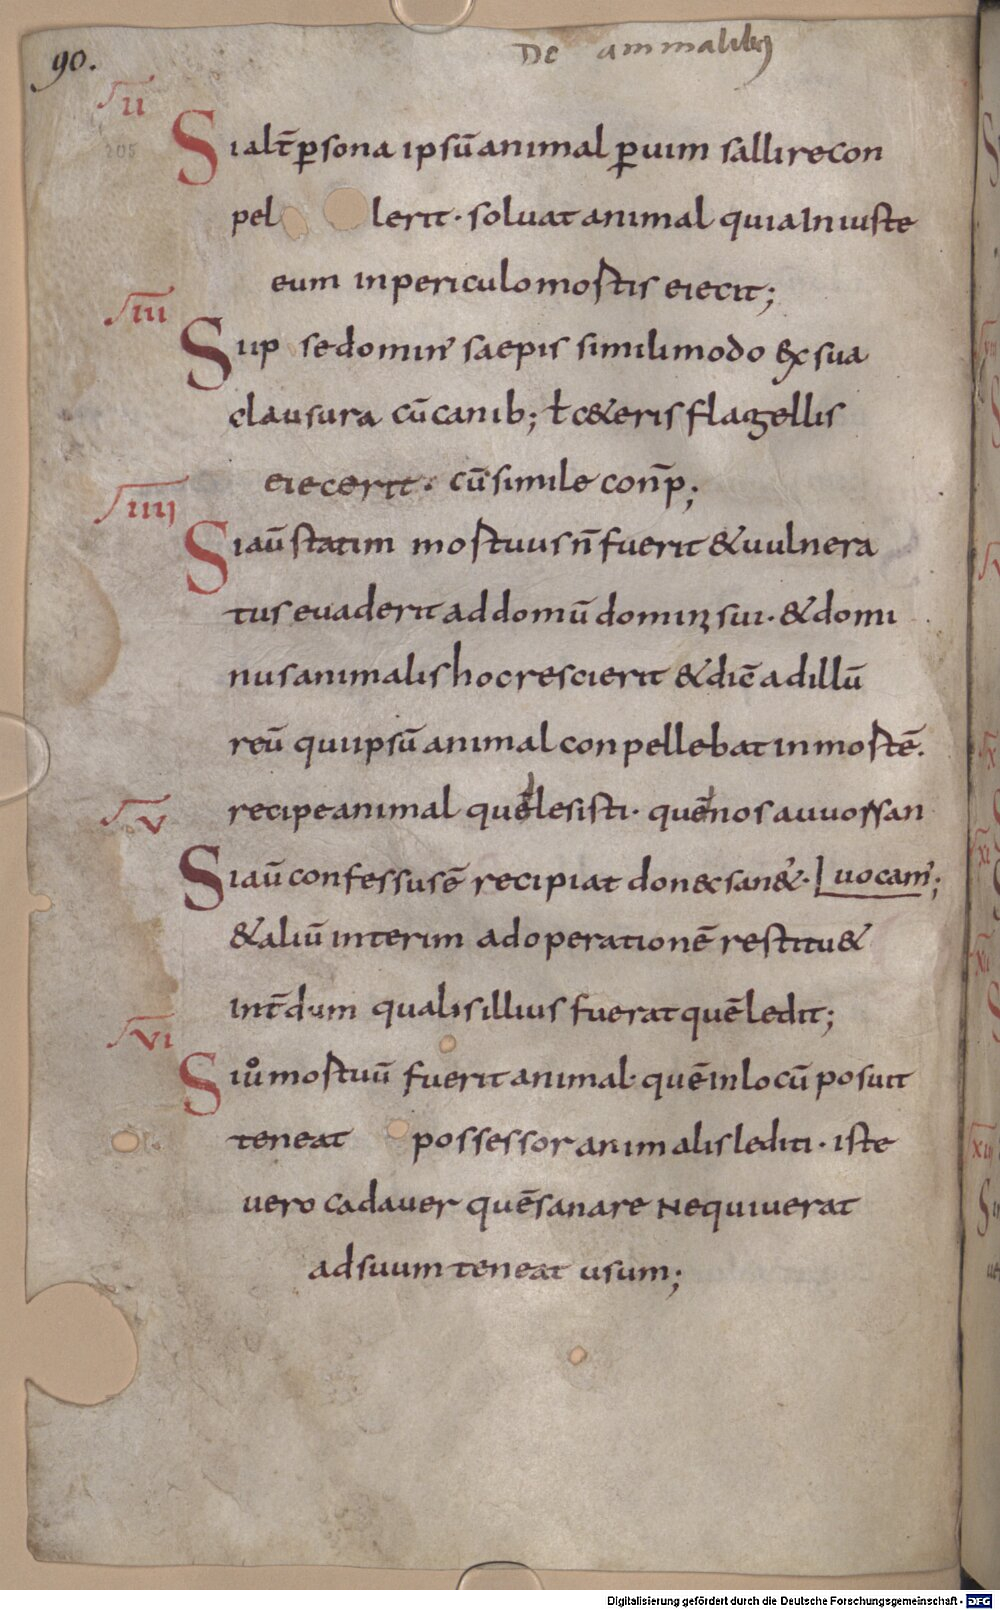 90.
De animalibꝫ
II
Si alt̄ ꝑsona ipsū animal ꝑ vim sallire con
pel lerit · solvat animal quia Iniuste
eum in periculo mostis eiecit;
III
Si ip se domin᾽ saepis simili modo & sua
clausura cū canib; ł c&eris flagellis
eiecerit · cū simile con̄p;
IIII
Si aū statim mostuus n̄ fuerit & uulnera
tus evaderit ad domū dominꝫ sui · & domi
nus animalis hoc rescierit & dic̄ ad illū
reū qui ipsū animal conpellebat in mostē.
recipe animal quēlesisti · quē nos auuossan
V
Si aū confessus ē recipiat donec san& · uocam᾽;
& aliū interim ad operationē restitu&
int̄dum qualis illius fuerat quē ledit;
VI
Si uͦ mostuū fuerit animal · quē in locū posuit
teneat possessor animalis lediti · iste
vero cadaver quē sanare Nequiverat
ad suum teneat usum;
205
Digitalisierung gefördert durch die Deutsche Forschungsgemeinschaft - DFG